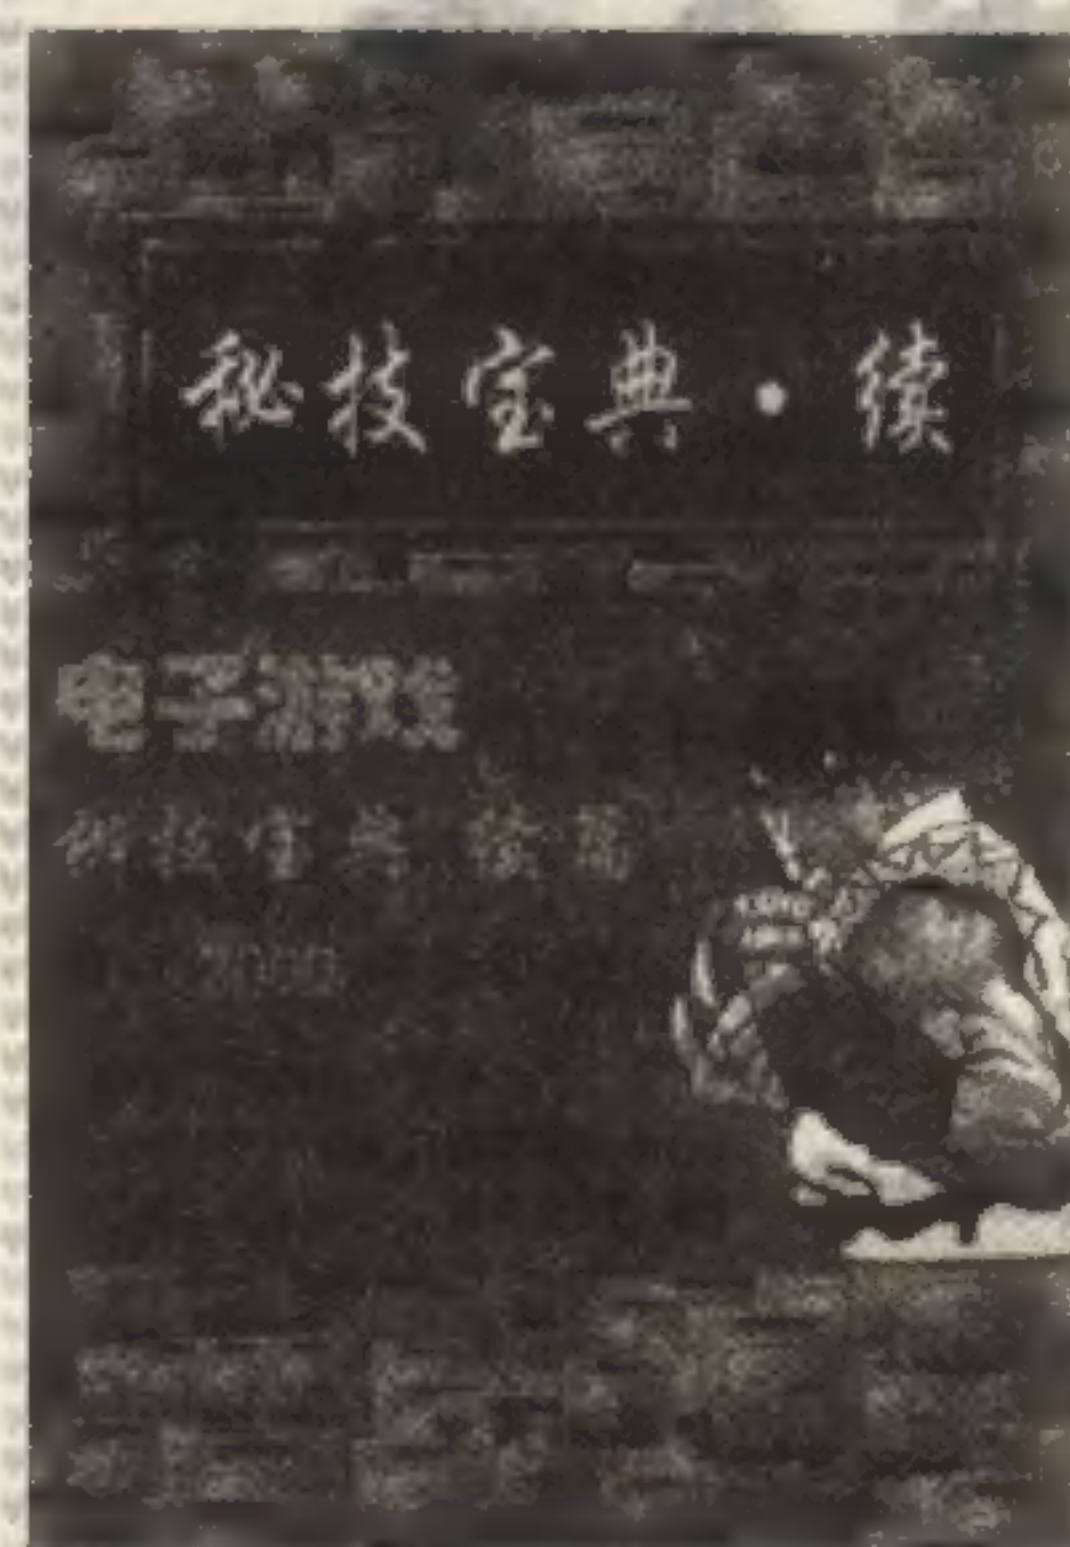 秘技宝典·续
电子游戏
秘技宝典 续篇